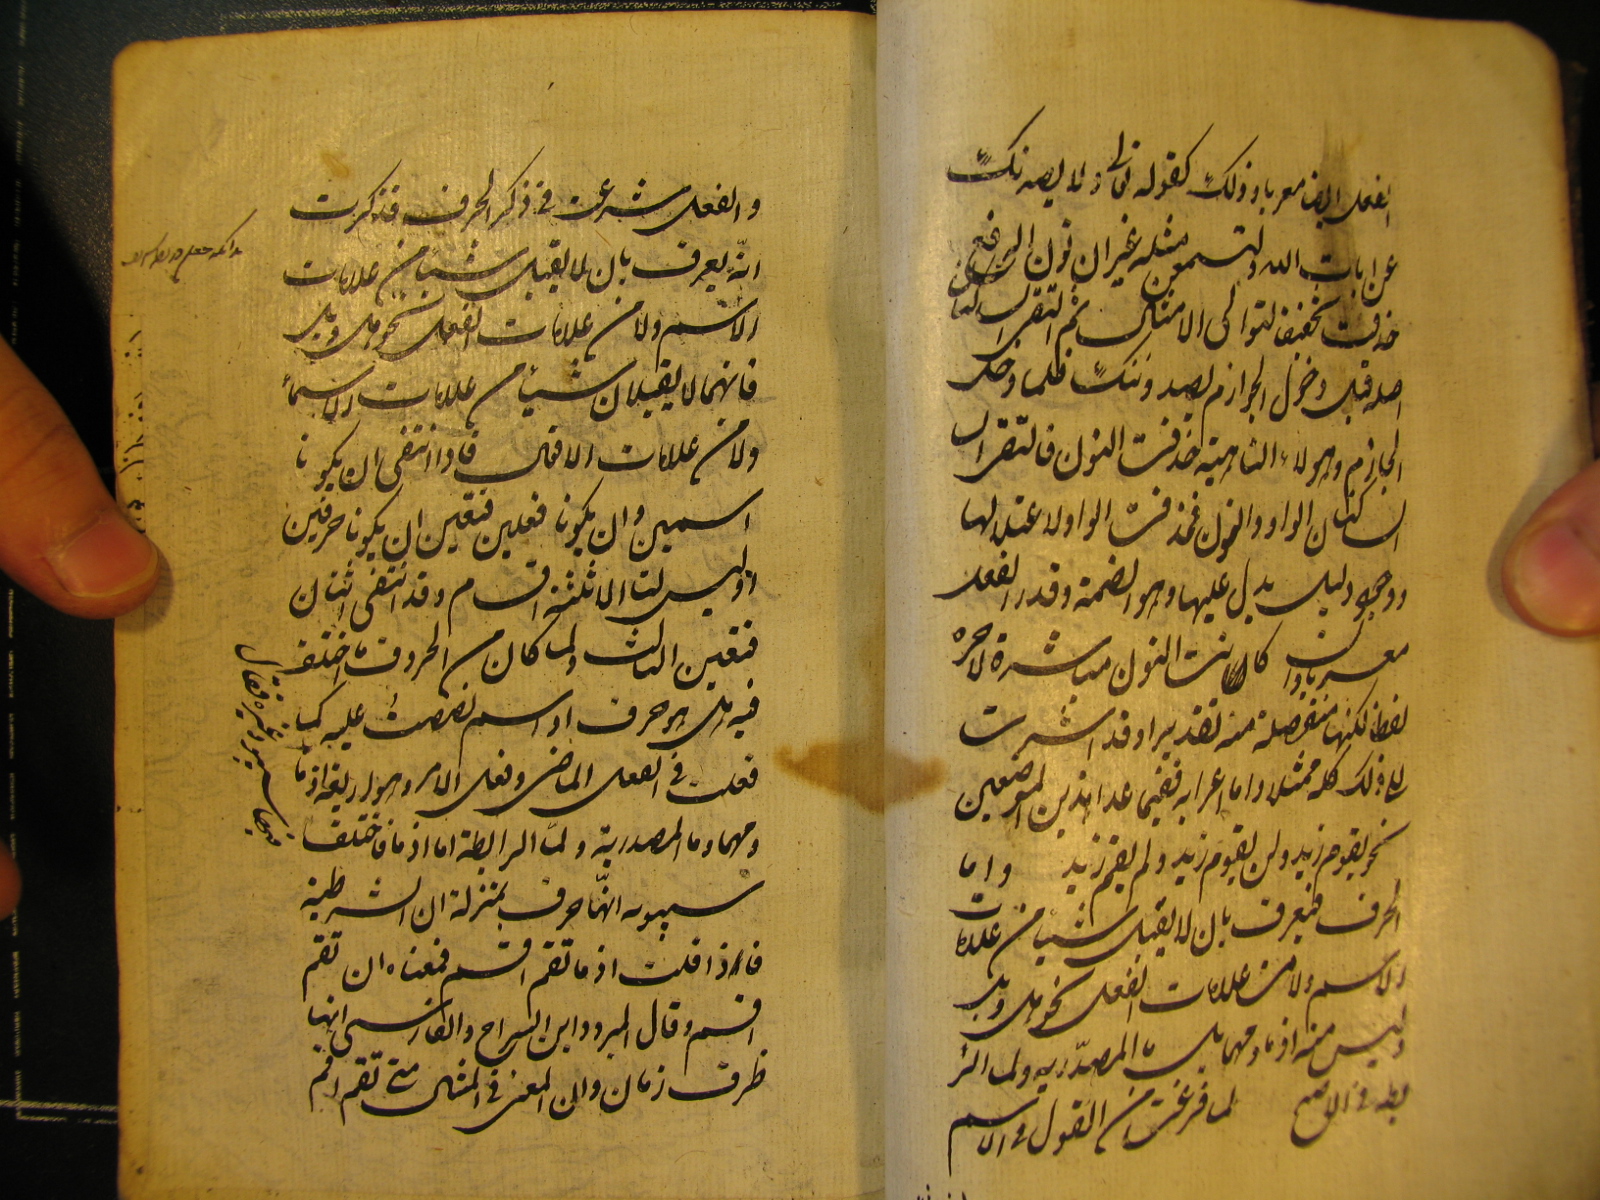 الفعل ايضا معربا وذلك كقوله تعالى ولا يصدنك
عن ايات الله ولتسمعن مثله غير ان نون الرفع
حذفت تخفيفا لتوالى الامثال ثم التقى الساكنان
اصله قبل دخول الجازم يصدوننك فلما دخل
الجازم وهو لاء الناهية حذفت النون فالتقى
الساكنان الواو والنون فحذفت الواو لاعتلالها
ووجود دليل يدل عليها وهو الضمة وقدر الفعل
معربا وان كانت النون مباشرة لاخره
لفظا لكنها منفصلة منه تقديرا وقد اشرت
الى ذلك كله ممثلا واما اعرابه ففيما عدا هذين الموضعين
نحو يقوم زيد ولن يقوم زيد ولم يقم زيد واما
الحرف فيعرف بان لا يقبل شيئا من علامات
الاسم ولا من علامات الفعل نحو هل وبل
وليس منه اذما ومهما بل ما المصدريه ولما الرا
بطه في الاصح لما فرغت من القول في الاسم
والفعل شرعت في ذكر الحرف فذكرت
انه يعرف بان لا يقبل شيئا من علامات
الاسم ولا من علامات الفعل نحو هل وبل
فانهما لا يقبلان شيئا من علامات الاسماء
ولا من علامات الافعال فاذا انتفى ان يكونا
اسمين وان يكونا فعلين فتعين ان يكونا حرفين
اذ ليس لنا الا ثلثة اقسام وقد انتفى اثنان
فتعين الثالث ولما كان من الحروف ما اختلف
فيه هل هو حرف او اسم نصصت عليه كما
فعلت في الفعل الماضي وفعل الامر وهو اربعة اذما
ومهما وما المصدرية ولما الرابطة اما اذما فاختلف
فيها سيبويه وغيره فقال
سيبويه انها حرف بمنزلة ان الشرطية
فاذا قلت اذما تقم اقم فمعناه ان تقم
اقم وقال المبرد وابن السراج والفارسى انها
ظرف زمان وان المعنى في المثال متى تقم اقم